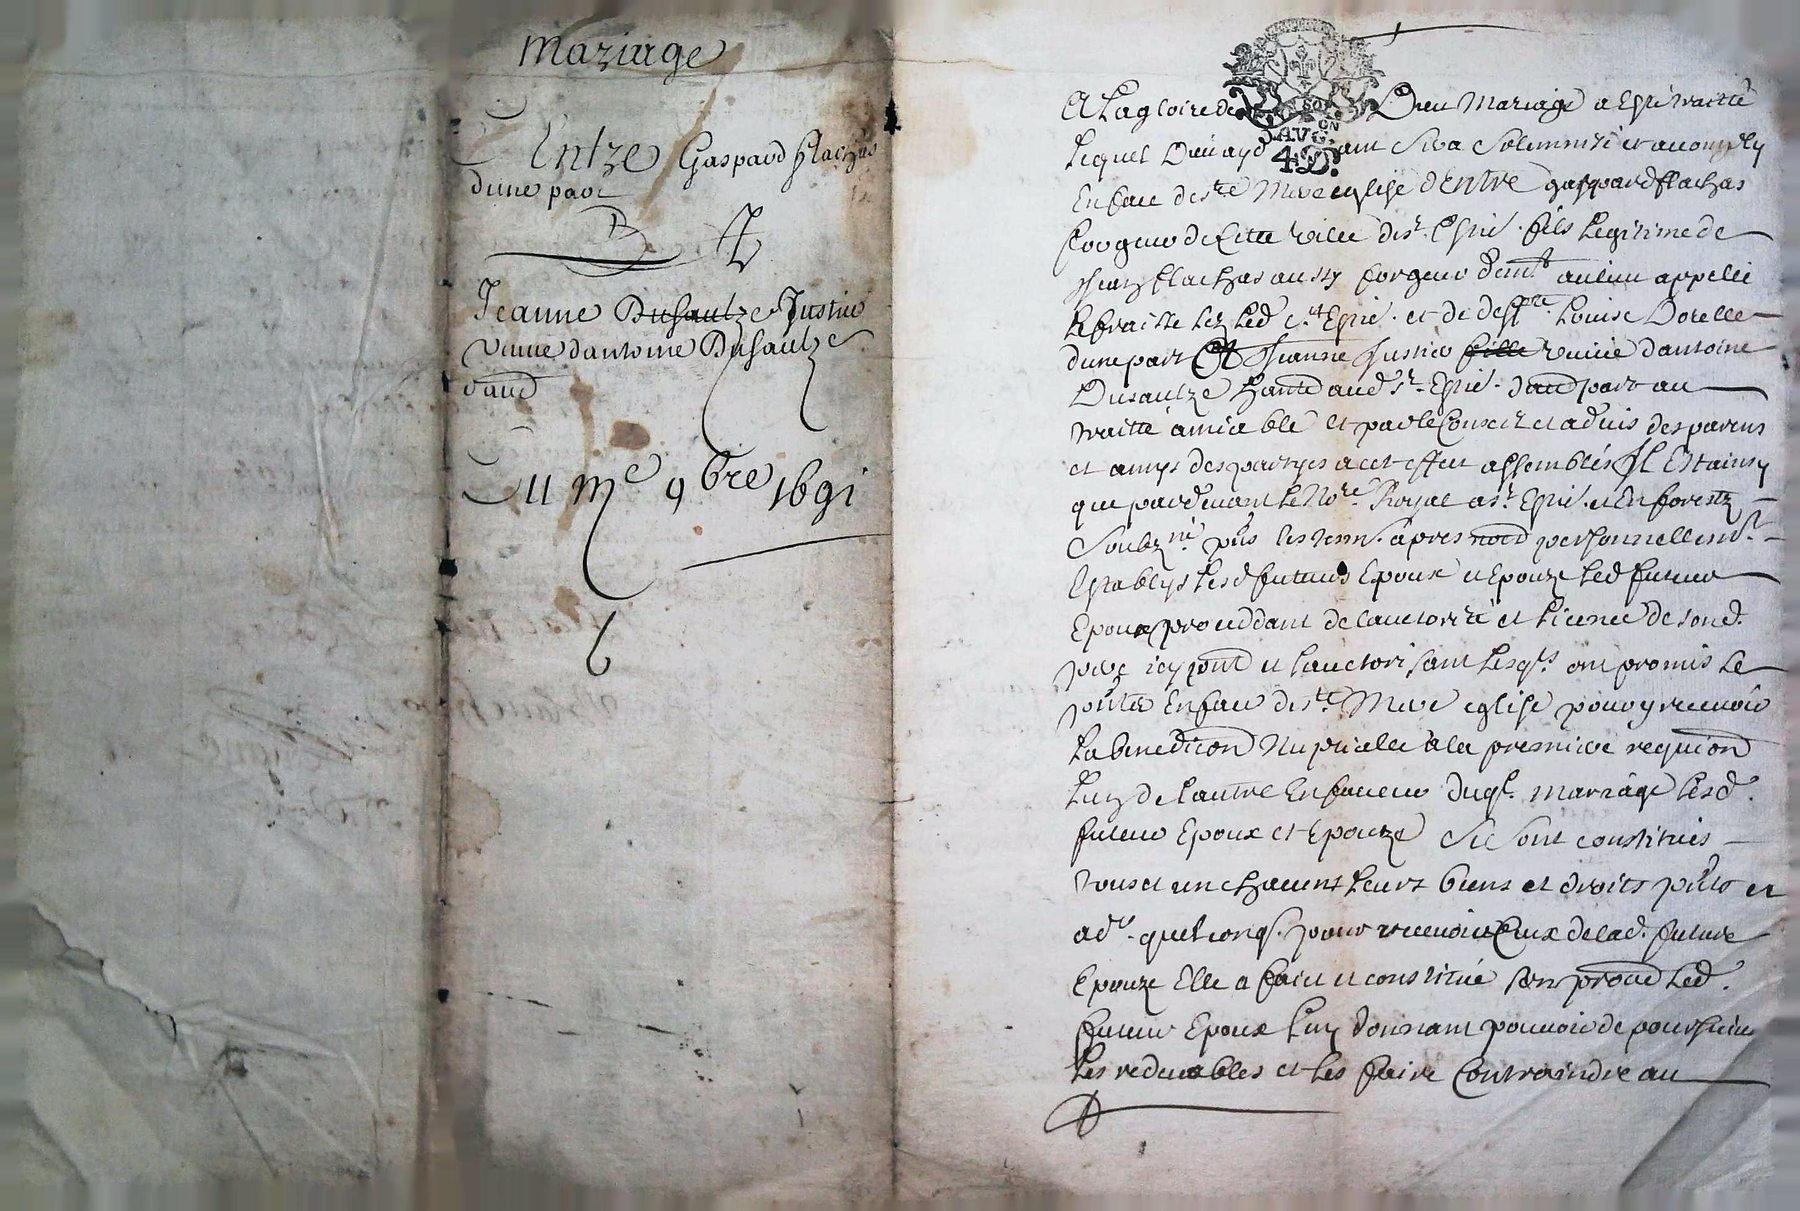 Mariage
Entre Gaspard flachas
dune part
Et
Jeanne Dusautze Justice
veuve dantoine Dusautze
daud
Du 11me 9bre 1691
6
50
AVG ON
4 D.
A Lagloire de Dieu Mariage a Esté traitté
Lequel Dieu ayd ant Sera Solemnizé et acomply
En face de ste Mere eglise d'Entre gaspard flachas
forgeur de Cette ville de st. Estié. fils Legitime de
Jean flachas aussy forgeur demt au lieu appellé
Lefraisse Lez Led. st Estié. et de deffte. Louise Dorelle
dune part Et Jeanne Justice fille veuve dantoine
Dusautze hante aud st. Estié. daud part au
traitté amiable et par le Conseil et aduis des parens
et amys des partyes a cet effet assemblés Il Est ainsy
que pardeuant le Nore. Royal a st. Estié. et En forestz
Soubzné. pñs les tesm. apres nod personnellemt.
Establys Lesd futeurs Epoux et Epouze Led futeur
Epoux proceddant de lauctorité et Licence de sond.
pere icy pnt et lauctorisant Lesqls ont promis Le
pnter En face de ste. Mere eglise pour y receuoir
La benediction Nuptialle a la premiere requion
Lun de l'autre En faueur duql. mariage Lesd.
futeur Epoux et Epouze Se sont constitués
tous et un chacuns leurs biens et droits pñts et
adv. quelconq. pour receuoir Ceux de lad. future
Epouze Elle a fait et constitué son procu Led.
futeur Epoux Luy donnant pouuoir de poursuiure
Les redeuables et les faire Contraindre au